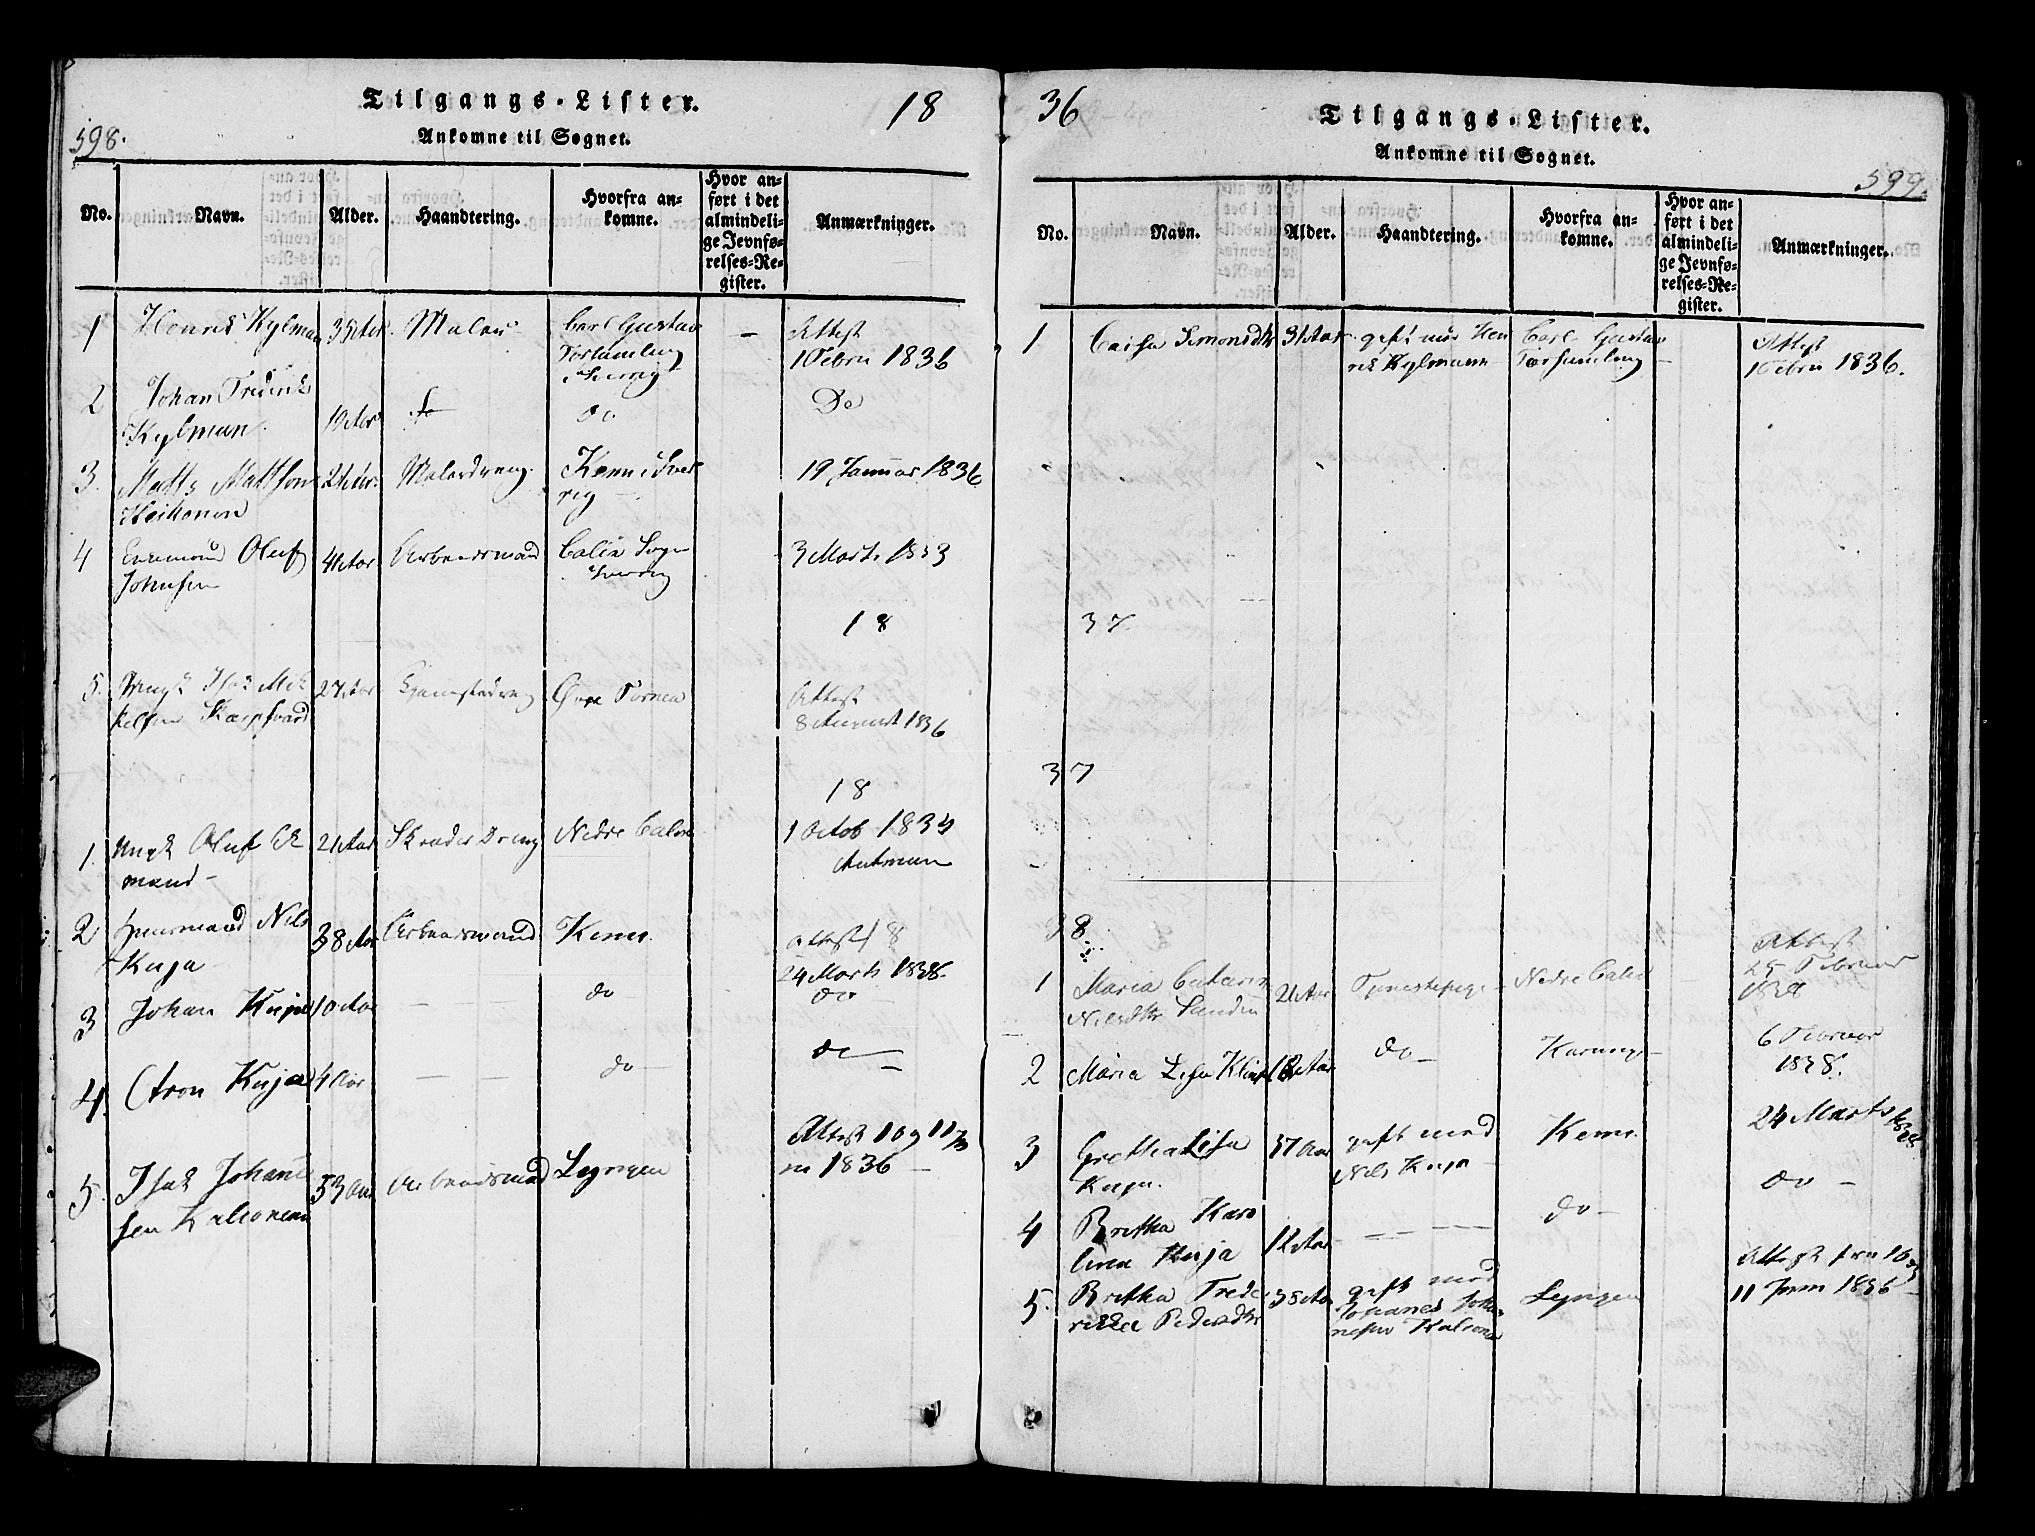 598.
Tilgangs-Lister.
18
Ankomne til Sognet.
No.
Navn.
Alder.
Haandtering.
Hvorfra ankomne.
Hvor anført i det almindelige Jevnførelses-Register.
Anmærkninger.
1 Henrik Kylman 35 Aar. Maler Carl Gustav Forsamling i Sverrig – Attest 1 Febru 1836
2 Johan Fridrik Kylman. 19 Aar do do. Do
3. Matts Mattson Heikonen 21 Aar. Malerdreng Kemi i Sverrig – 19 Januar 1836
4 Oluf Johnsen 41 Aar Arbeidsmand Calix Sogn Sverrig 3 Marts 1833
18
5. Isak Mikkelsen 27 Aar Øvre Tornea Attest 8 August 1836
18
1. Ungk Oluf 21 Aar Skræder Dreng Nedre Calix 1 Octob 1834
2 Nils Kuja 38 Aar Arbeidsmand Kemi. Attest 24 Marts 1838.
3 Johan Kuja 10 Aar – – do do
4. Aron Kuja 4 Aar – – do – do –
5. Isak Johannesen 53 Aar Arbeidsmand Lyngen Attest 10 og 11 1836 –
36
Tilgangs-Lister.
Ankomne til Sognet.
599.
No.
Navn.
Alder.
Haandtering.
Hvorfra ankomne.
Hvor anført i det almindelige Jevnførelses-Register.
Anmærkninger.
1 Caisa Simonsdtr 31 Aar gift med Henrik Kylmann Carl Gustav Forsamling – Attest 1 Febru 1836.
37.
37
38
1 Maria Catarin Nilsdtr Sandin 21 Aar Tjenestepige – Nedre Calix Attest 25 Februar 1838
2 Maria Lisa 18 Aar do – Karunge – 6 Februar 1838.
3 Gretha Lisa Kuja. 37 Aar gift med Nils Kuja Kemi. 24 Marts 1838
4 Bretha Karolina Kuja 12 Aar – – – do – do –
5. Bretha Frederikke Pedersdtr 35 Aar gift med Johannes Lyngen Attest fra 10 og 11 1836